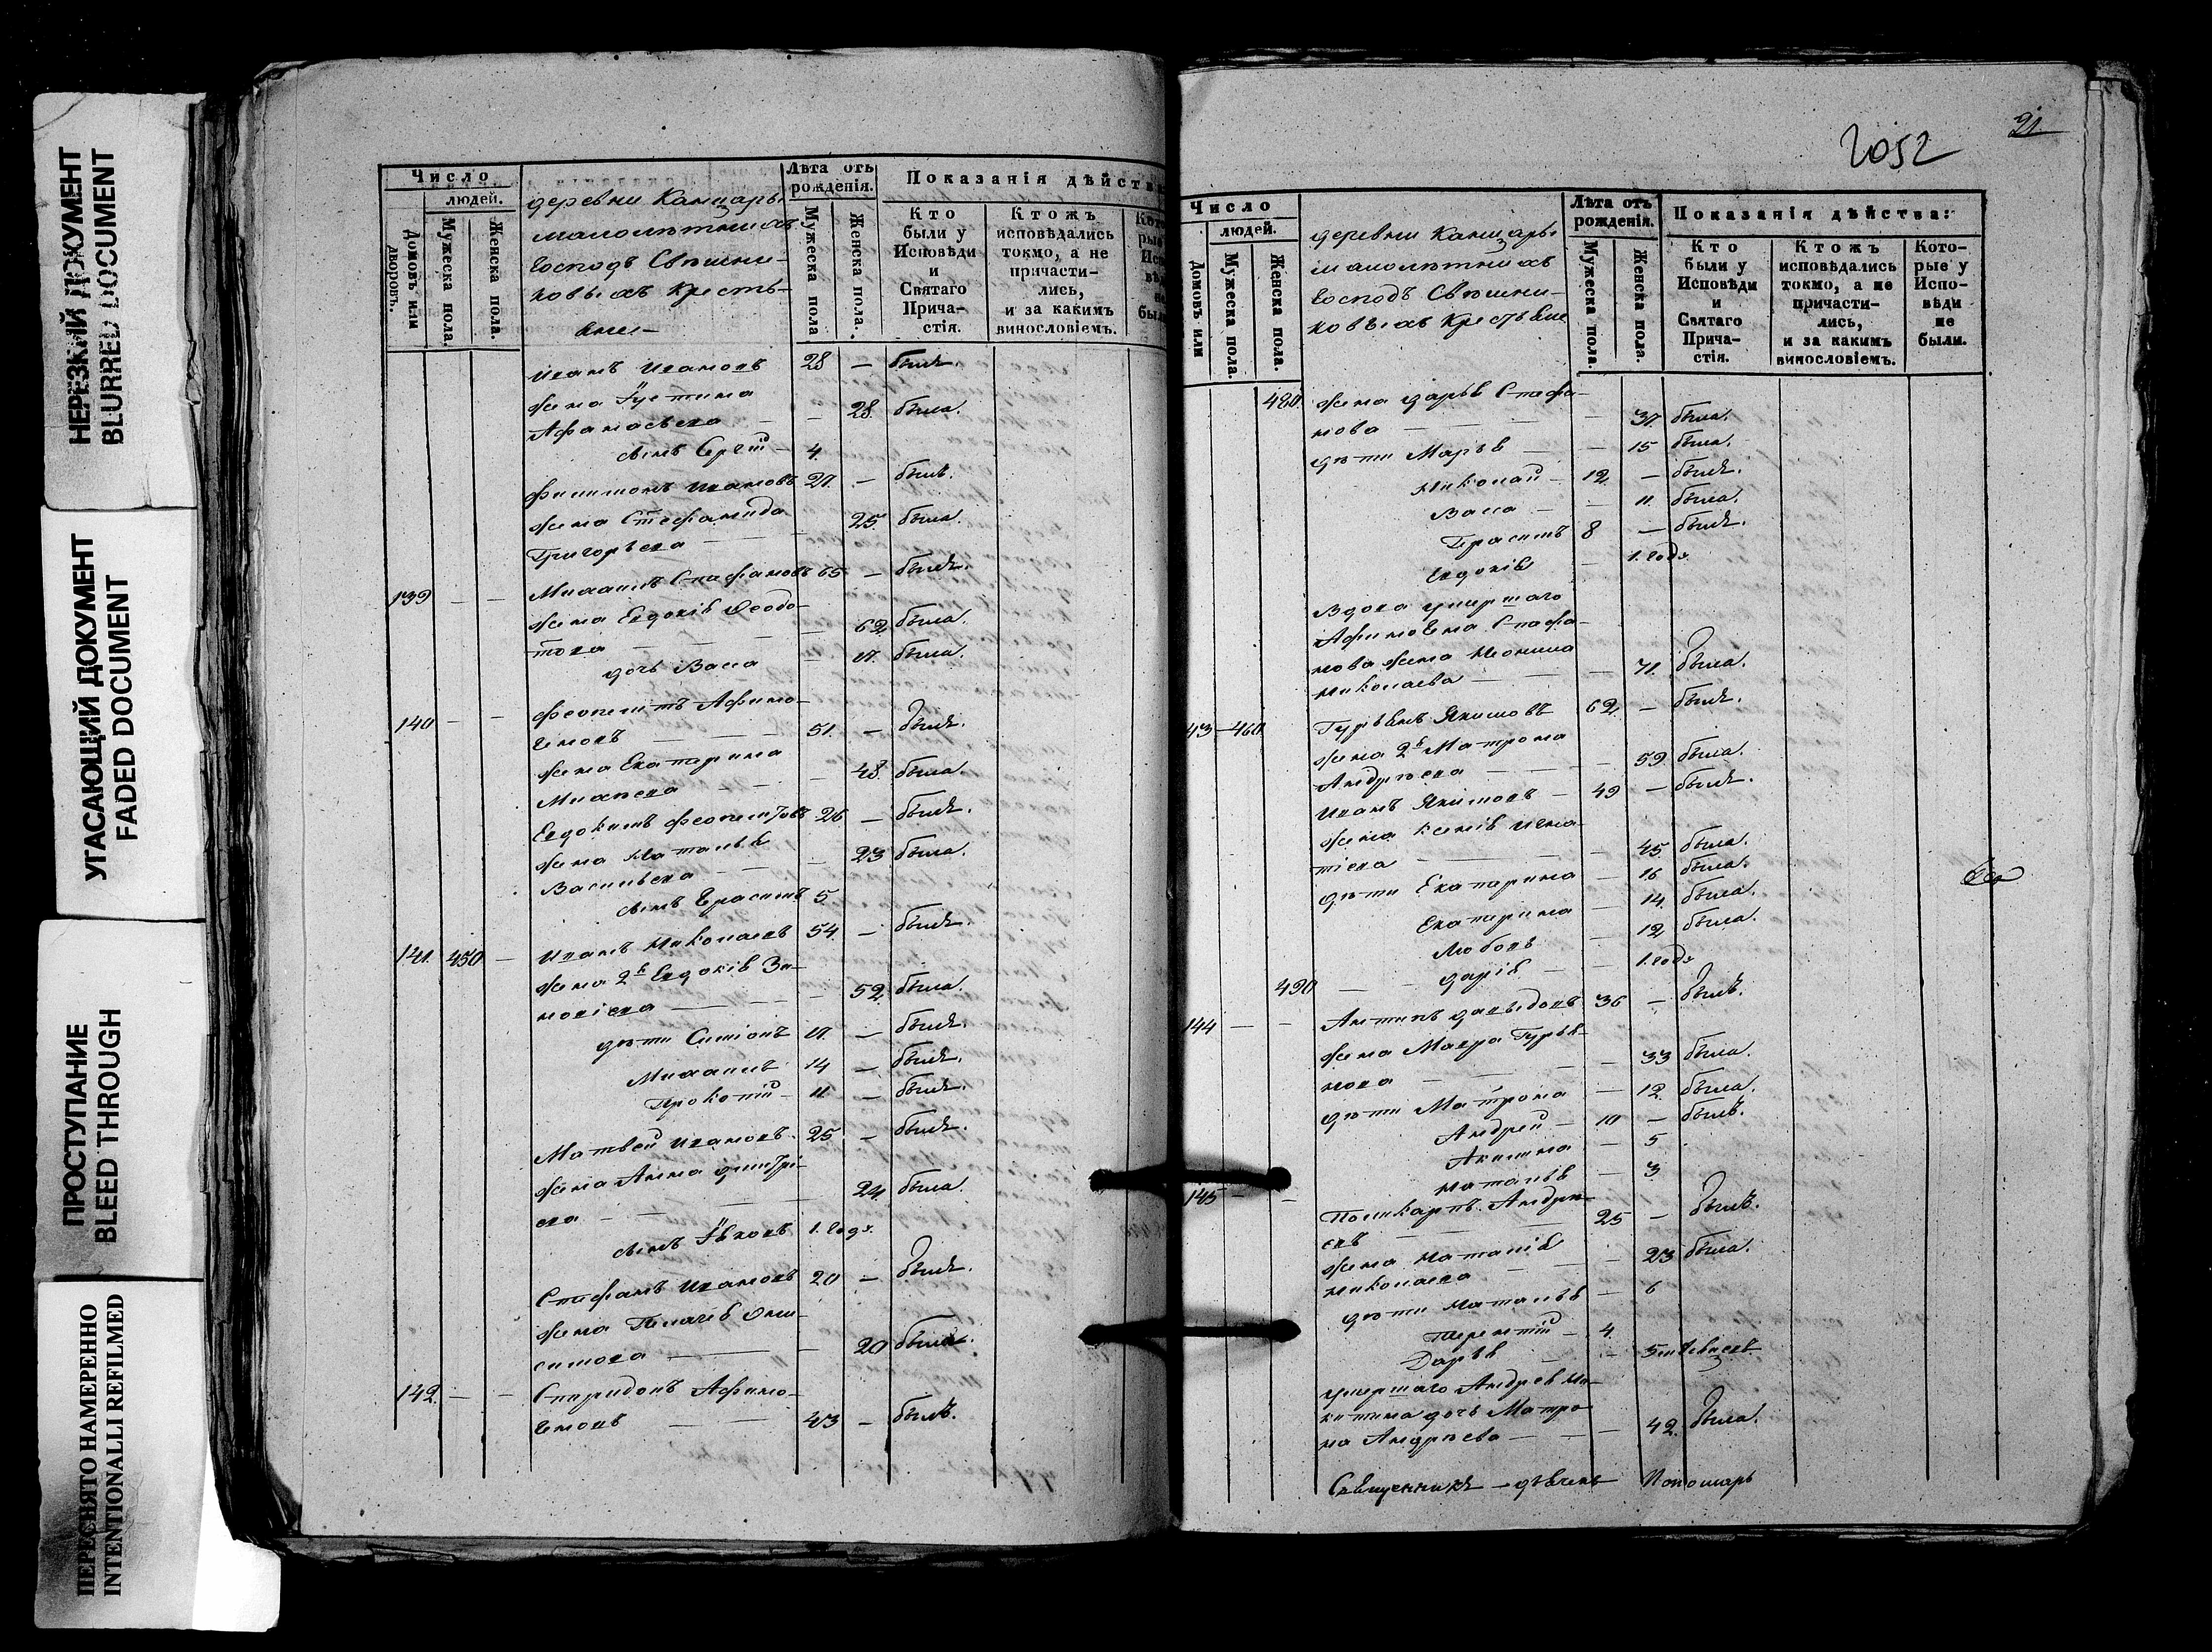 НЕРЕЗКИЙ ДОКУМЕНТ
BLURRED DOCUMENT
УГАСАЮЩИЙ ДОКУМЕНТ
FADED DOCUMENT
ПРОСТУПАНИЕ
BLEED THROUGH
ПЕРЕСНЯТО НАМЕРЕННО
INTENTIONALLI REFILMED
Число
людей.
Домовъ или дворовъ.
Мужеска пола.
Женска пола.
деревни
малолѣтнихъ
Господъ Свѣшни-
ковыхъ Кресть-
яне
Лѣта отъ рожденія.
Мужеска пола
Женска пола.
Показанія дѣйств
Кто были у Исповѣди и Святаго Прича-стія.
Ктожъ исповѣдались токмо, а не причасти-лись, и за какимъ винословіемъ.
Иванъ Ивановъ 28 — былъ.
жена Іустина
Афанасьева — 28. была.
сынъ Сергій — 4.
Филимонъ Ивановъ 27. — былъ.
жена Стефанида
Григорьева — 25. была.
139 — — Михаилъ Стефановъ 65 — былъ.
жена Евдокія Ѳеодо-
това — 62 была.
дочь Васса — 17. была.
140 — — Феопентъ Афино-
геновъ 51. — былъ.
жена Екатерина
Михѣева — 48. была.
Евдокимъ Феопентовъ 26 — былъ.
жена Наталья
Васильева — 23 была.
сынъ Герасимъ 5
141. 450 — Иванъ Николаевъ 54. — былъ.
жена 2я Евдокія Зи-
новіева — 52. была.
дѣти Симіонъ 17. — былъ.
Михаилъ 14 — былъ.
Прокопій — 11 — былъ.
Матвей Ивановъ 25 — былъ.
жена Анна Дмитрі-
ева — 24. была.
сынъ Яковъ 1. годъ.
Стефанъ Ивановъ 20 — былъ.
жена Пелагея Они-
симова — 20 была.
142. — — Спиридонъ Афино-
геновъ 43 — былъ.
2052
91
Число
людей.
Домовъ или
Мужеска пола.
Женска пола.
деревни
малолѣтнихъ
Господъ Свѣшни-
ковыхъ Крестьяне
Лѣта отъ рожденія.
Мужеска пола.
Женска пола.
Показанія дѣйства:
Кто были у Исповѣди и Святаго Прича-стія.
Ктожъ исповѣдались токмо, а не причасти-лись, и за какимъ винословіемъ.
Кото-рые у Испо-вѣди не были.
480. жена Дарья Стефа-
нова — 37. была.
дѣти Марья — 15 была.
Николай — 12 — былъ.
Васса — 11 была.
Герасимъ 8 — былъ.
Евдокія — 1. годъ
Вдова умершаго
Афиногена Стефа-
нова жена Неонила
Николаева — 71. была.
43 — 460 Гурьянъ Якимовъ 62. — былъ.
жена 2я Матрона
Андрѣева — 59. была.
Иванъ Якимовъ — 49 — былъ.
жена Ксенія Игна-
тіева — 45. была.
дѣти Екатерина — 16 была.
Екатерина — 14. была.
Любовь — 12 была.
490 Дарія — 1. годъ
144 — — Антипъ Давыдовъ 36 — былъ.
жена Мавра Гурья-
нова — 33 была.
дѣти Матрона — 12. была.
Андрей — 10 — былъ.
Акилина — 5
Наталья — 3
145 — — Поликарпъ Андре-
евъ 25 — былъ.
жена Наталія
Николаева — 23 была.
дѣти Наталья — 6
Терентій — 4.
Дарья — 5ти мѣсяцевъ
умершаго Андрея Ни-
китина дочь Матро-
на Андрѣева — 42. была.
Священникъ — дьяконъ Пономарь